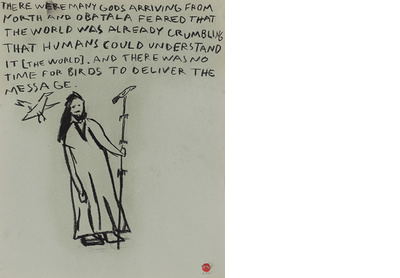 THERE WERE MANY GODS ARRIVING FROM
NORTH AND OBATALA FEARED THAT
THE WORLD WAS ALREADY CRUMBLING
THAT HUMANS COULD UNDERSTAND
IT [THE WORLD]. AND THERE WAS NO
TIME FOR BIRDS TO DELIVER THE
MESSAGE.